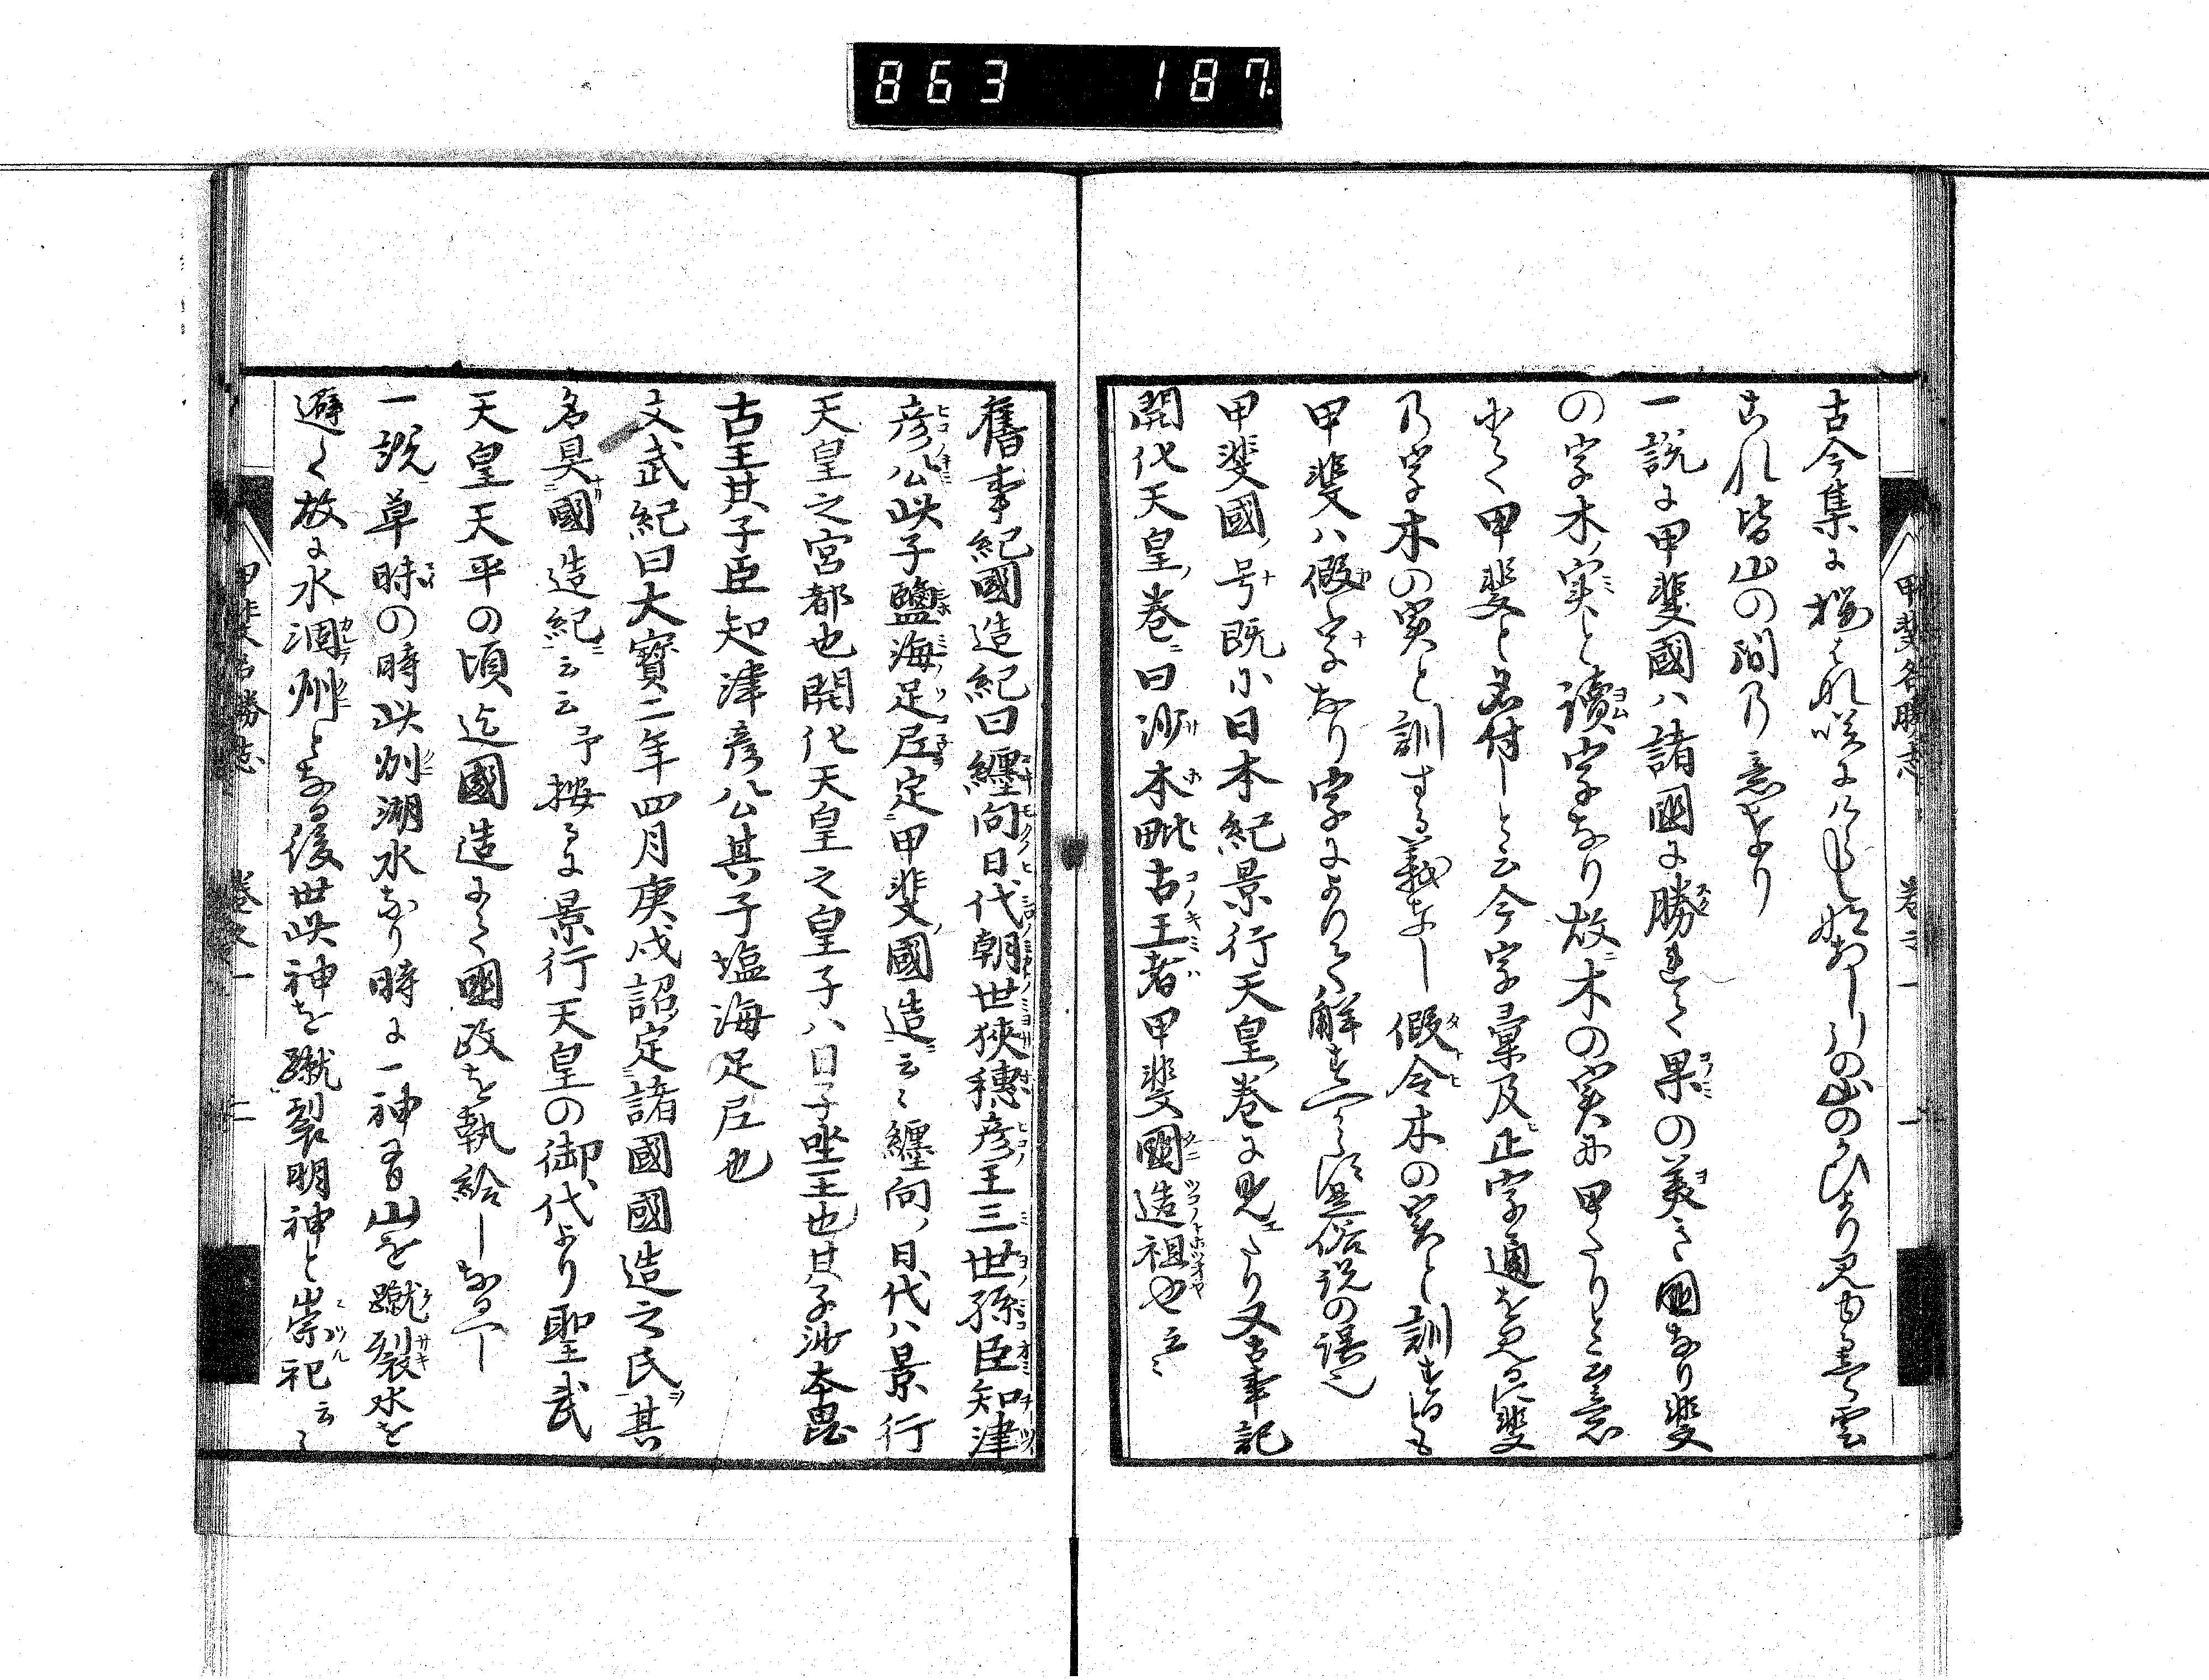 863 187
甲斐名勝志 巻之一 一
古今集に桜はな咲にけらしなあしひの山のかひより見ゆる雲
これ皆山の間乃意なり
一説に甲斐國ハ諸國に勝れて果の美き國なり斐
の字木ノ実と讀字なり故ニ木の実に甲たりと云意
にて甲斐と名付しと云今字彙及正字通を見るに斐
乃字木の実と訓する義なし假令木の実と訓するも
甲斐ハ假字なり字によりて解すへからす是俗説の誤也
甲斐國ノ号既に日本紀景行天皇ノ巻に見エたり又古事記
開化天皇ノ巻ニ曰沙本毗古王者甲斐國造祖也云々
舊事紀國造紀曰纒向日代朝世狹穗彦王三世孫臣知津
彦公此子鹽海足尼定甲斐國造云々纒向ノ日代ハ景行
天皇之宮都也開化天皇之皇子ハ日子坐王也其子沙本毘
古王其子臣知津彦公其子塩海足尼也
文武紀曰大寳二年四月庚戌詔定諸國國造之氏其
名具國造紀云云予按るに景行天皇の御代より聖武
天皇天平の頃迄國造にて國政を執給しなるへし
一説草昧の時此州湖水なり時に一神有山を蹴裂水を
避く故に水涸州となる後世此神を蹴裂明神と崇祀云々
甲斐名勝志 巻之一 二